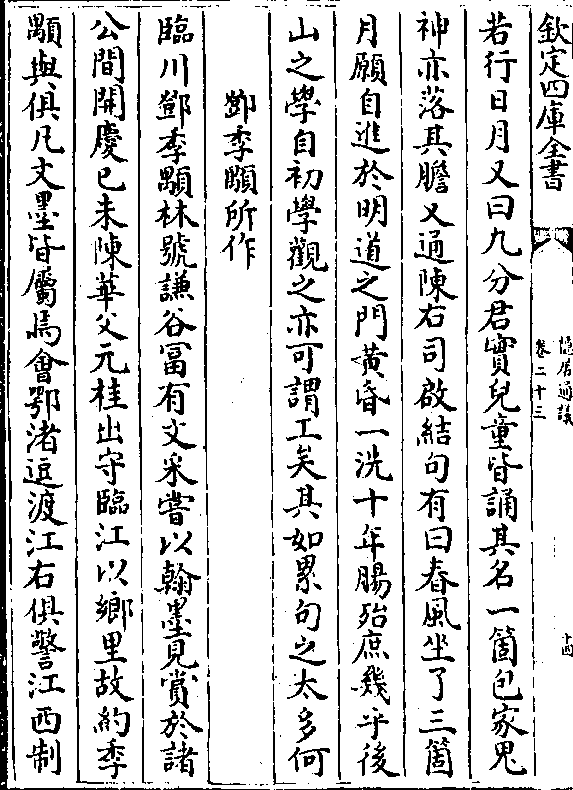 欽定四庫全書
隱居通議
卷二十三
十四
若行日月又曰九分君實兒童皆誦其名一箇包家鬼
神亦落其膽又通陳右司啟結句有曰春風坐了三箇
月願自進於明道之門黃昏一洗十年腸殆庶幾乎後
山之學自初學觀之亦可謂工矣其如累句之太多何
鄧季顒所作
臨川鄧季顒林號謙谷富有文采嘗以翰墨見賞於諸
公間開慶已未陳華父元桂出守臨江以鄉里故約季
顒與俱凡文墨皆屬焉會鄂渚逗渡江右俱警江西制